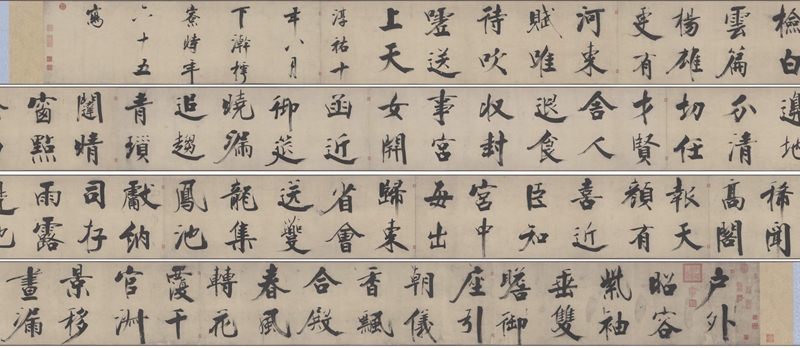 戶外
昭容
紫袖
垂雙
瞻御
座引
朝儀
香飄
合殿
春風
轉花
覆千
官淑
景移
晝漏
稀聞
高閣
報天
顏有
喜近
臣知
宮中
每出
歸東
省會
送夔
龍集
鳳池
獻納
司存
雨露
邊地
分清
切任
才賢
舍人
退食
收封
事宮
女開
函近
御筵
曉漏
追趨
青瑣
闥晴
窗點
檢白
雲篇
楊雄
更有
河東
賦唯
待吹
噓送
上天
淳祐十
年八月
下澣樗
寮時年
六十五
寫